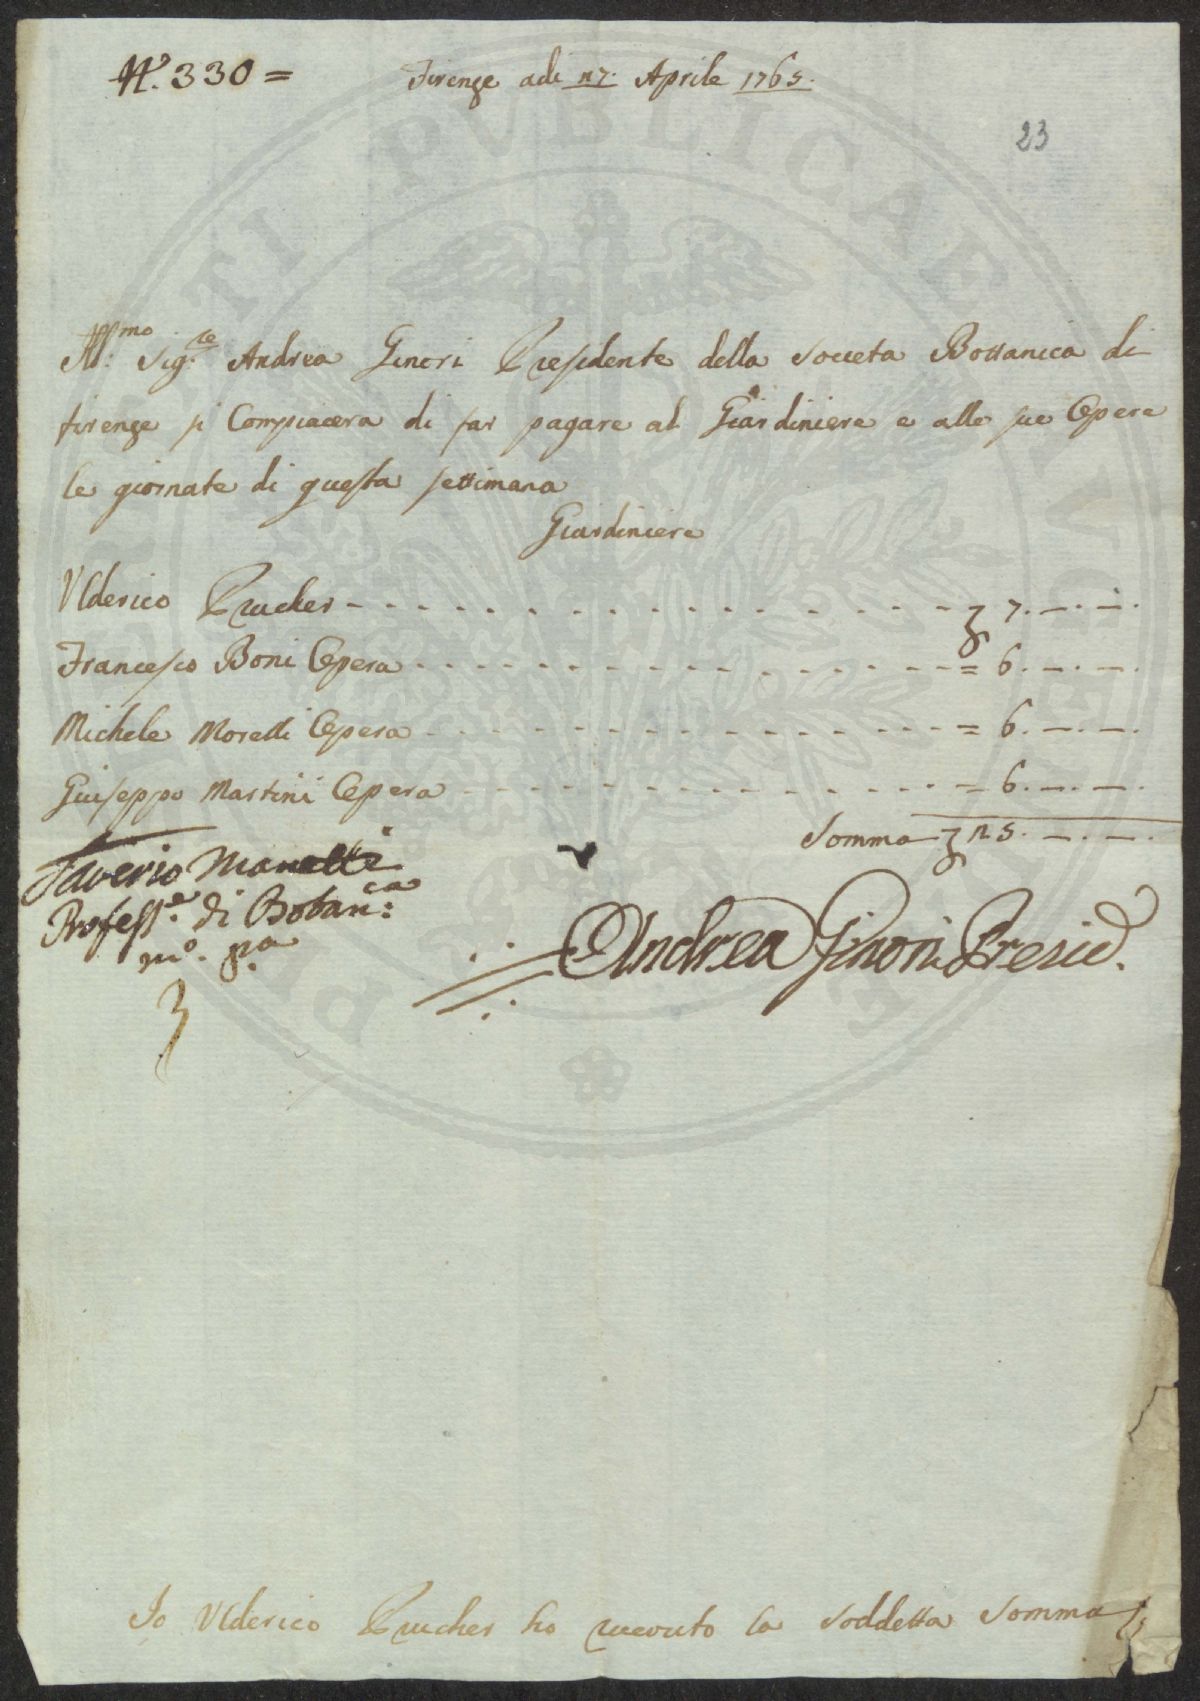 N.º 330 =
Firenze adi 27. Aprile 1765.
23
Ill:mo Sig:re Andrea Ginori Presidente della Società Bottanica di
firenze si Compiacera di far pagare al Giardiniere e alle sue Opere
le giornate di questa settimana
Giardiniere
Ulderico Prucher - - - - - - - - - - - - - - - - ʒ 7. —. —.
Francesco Boni Opera - - - - - - - - - - - - - - = 6. —. —.
Michele Morelli Opera - - - - - - - - - - - - - - = 6. —. —.
Giuseppo Martini Opera - - - - - - - - - - - - - = 6. —. —.
Somma ʒ 25. —. —.
Saverio Manetti
Profess:e di Botan:ca
mº. pa
Andrea Ginori Presid.
Io Ulderico Prucher ho riceuto la Soddetta Somma
PIETATI PVBLICAE